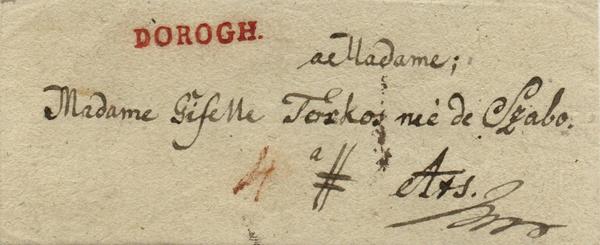 DOROGH.
a Madame;
Madame Giselle Torkos neé de Szabo.
4 a # Ats.